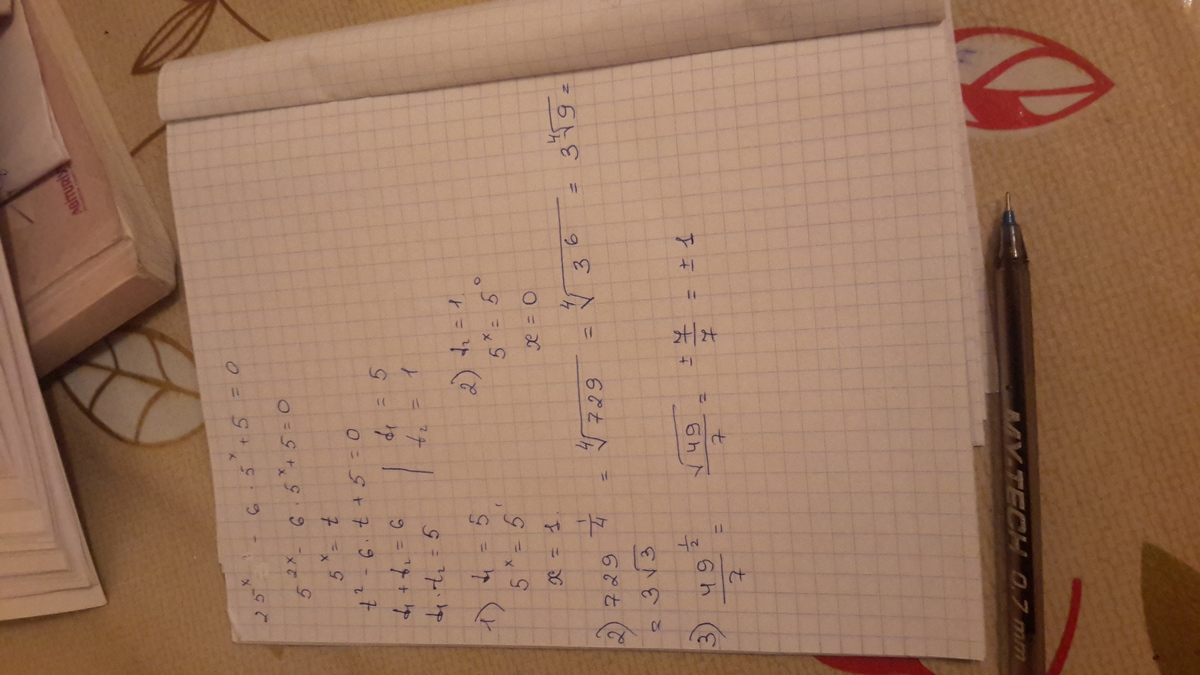 25^x - 6 · 5^x + 5 = 0
5^2x - 6 · 5^x + 5 = 0
5^x = t
t² - 6 · t + 5 = 0
t₁ + t₂ = 6 | t₁ = 5
t₁ · t₂ = 5 | t₂ = 1
1) t₁ = 5 2) t₂ = 1
5^x = 5^1 5^x = 5^0
x = 1 x = 0
2) 729^(1/4) = ⁴√729 = ⁴√3^6 = 3 ⁴√9 =
= 3√3
3) 49^(1/2)/7 = √49/7 = ± 7/7 = ± 1
MY-TECH 0.7 mm